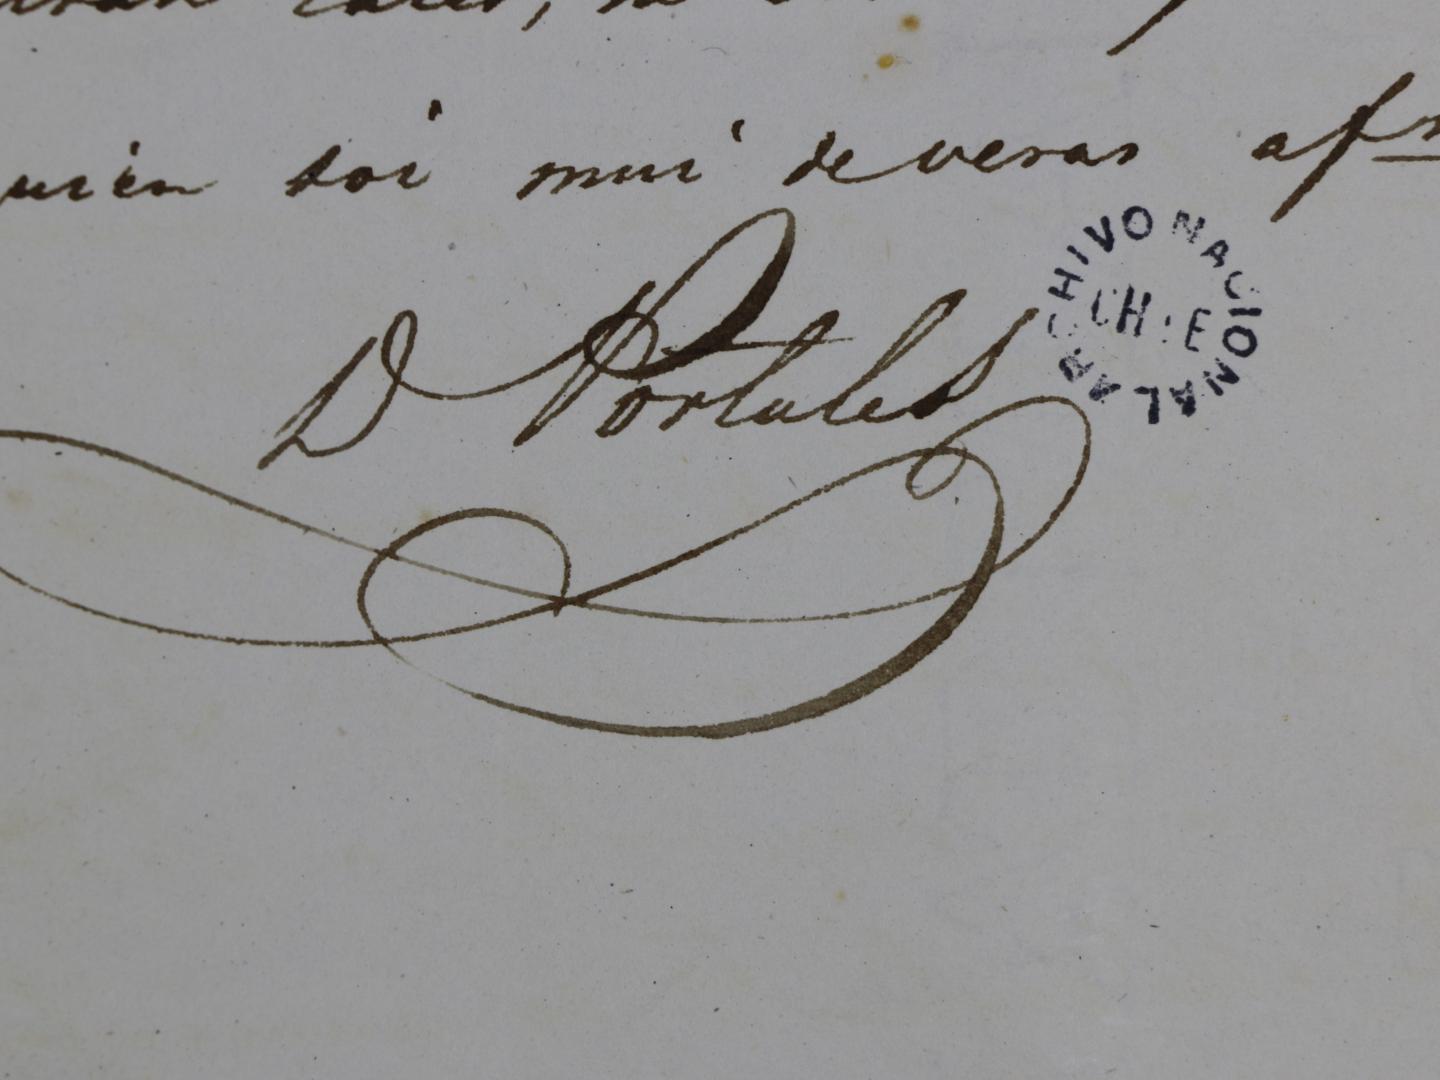 quien soi mui de veras af
D Portales
ARCHIVO NACIONAL
CHILE